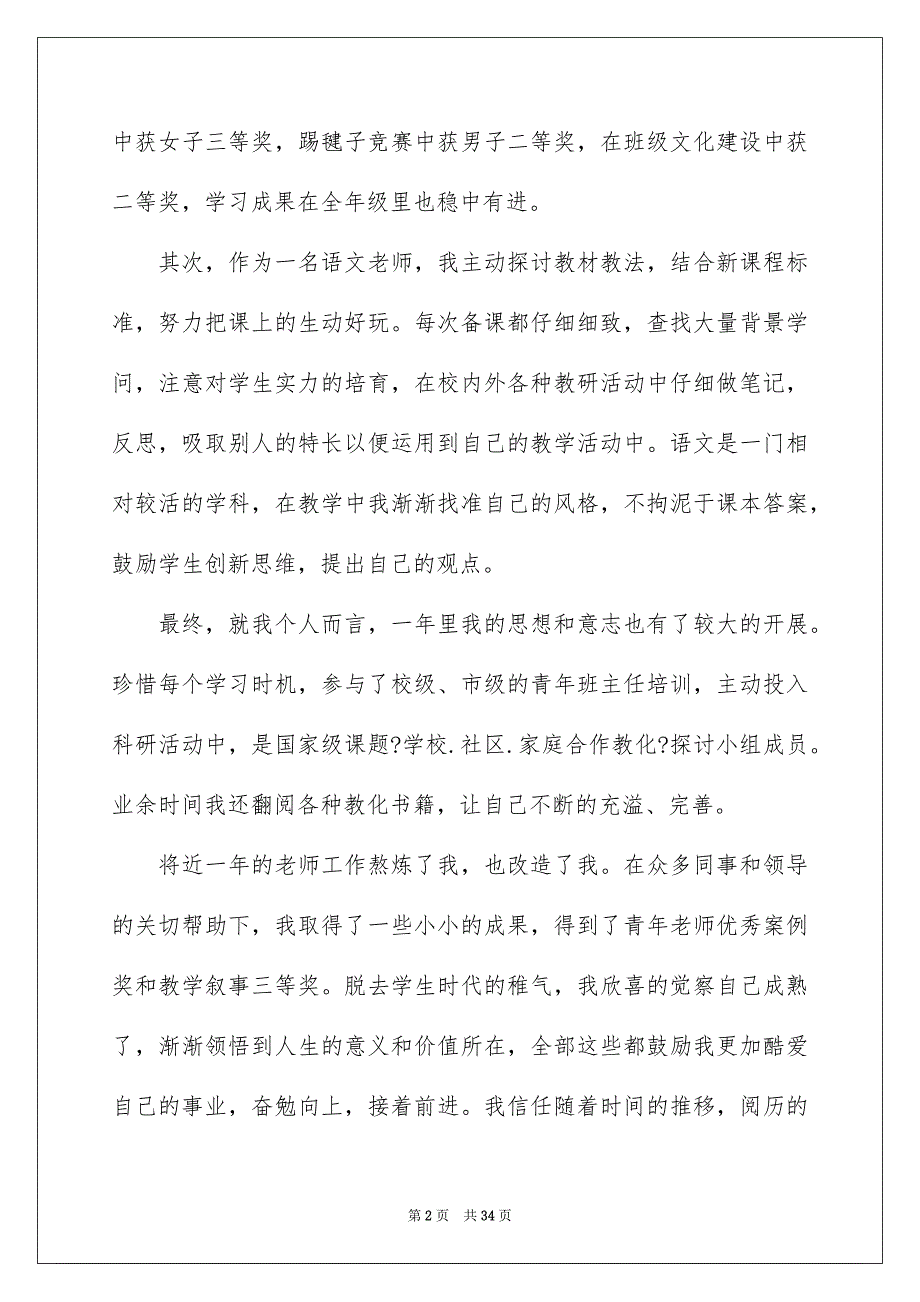 中获女子三等奖，踢毽子竞赛中获男子二等奖，在班级文化建设中获
二等奖，学习成果在全年级里也稳中有进。
其次，作为一名语文老师，我主动探讨教材教法，结合新课程标
准，努力把课上的生动好玩。每次备课都仔细细致，查找大量背景学
问，注意对学生实力的培育，在校内外各种教研活动中仔细做笔记，
反思，吸取别人的特长以便运用到自己的教学活动中。语文是一门相
对较活的学科，在教学中我渐渐找准自己的风格，不拘泥于课本答案，
鼓励学生创新思维，提出自己的观点。
最终，就我个人而言，一年里我的思想和意志也有了较大的开展。
珍惜每个学习时机，参与了校级、市级的青年班主任培训，主动投入
科研活动中，是国家级课题?学校.社区.家庭合作教化?探讨小组成员。
业余时间我还翻阅各种教化书籍，让自己不断的充溢、完善。
将近一年的老师工作熬炼了我，也改造了我。在众多同事和领导
的关切帮助下，我取得了一些小小的成果，得到了青年老师优秀案例
奖和教学叙事三等奖。脱去学生时代的稚气，我欣喜的觉察自己成熟
了，渐渐领悟到人生的意义和价值所在，全部这些都鼓励我更加酷爱
自己的事业，奋勉向上，接着前进。我信任随着时间的推移，阅历的
第 2 页 共 34 页